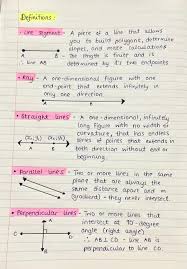 Definitions:
• Line segment - A piece of a line that allows
you to build polygons, determine
slopes, and make calculations.
A B
The length is finite and is
∴ line AB
determined by its two endpoints.
• Ray - A one-dimensional figure with one
end-point that extends infinitely
in only one direction.
A B
• Straight lines - A one-dimensional, infinitely
long figure with no width or
curvature, that has endless
series of points that extends in
both direction without end or
beginning.
• Parallel lines - Two or more lines in the same
plane that are always the
same distance apart and
(gradient) - they never intersect.
• Perpendicular lines - Two or more lines that
intersect at 90-degree
angle (right angle)
∴ AB ⊥ CD - line AB is
perpendicular to line CD.